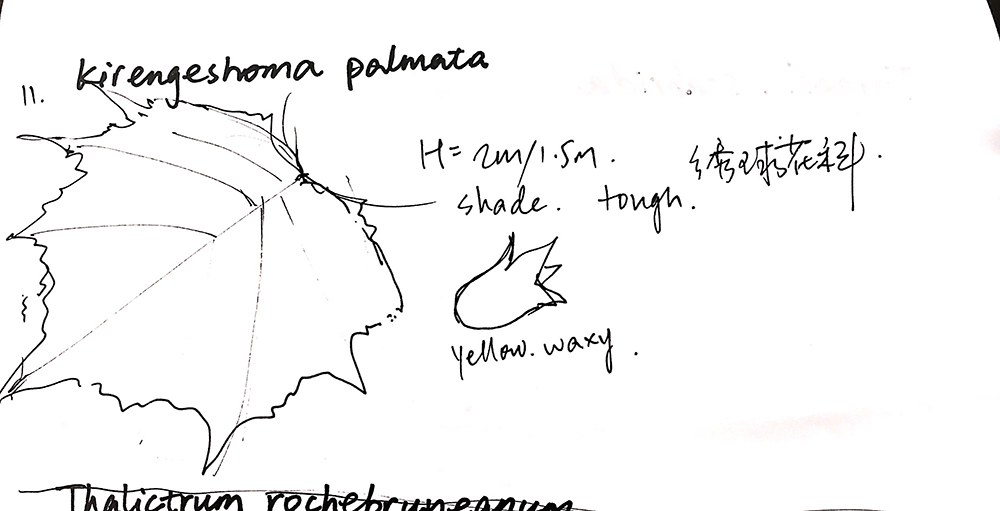 Kirengeshoma palmata
11.
H= 2m/1.5m. 绣球花科.
shade. tough.
yellow. waxy.
Thalictrum rochebruneanum